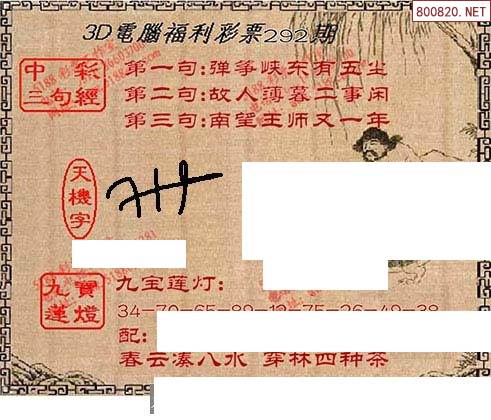 800820.NET
3D電腦福利彩票292期
中彩
三句經
第一句:弹筝峡东有五尘
第二句:故人薄暮二事闲
第三句:南望王师又一年
天機字
九寶蓮燈
九宝莲灯:
34-70-65-89-12-75-26-49-38
配:
春云溱八水 穿林四种茶